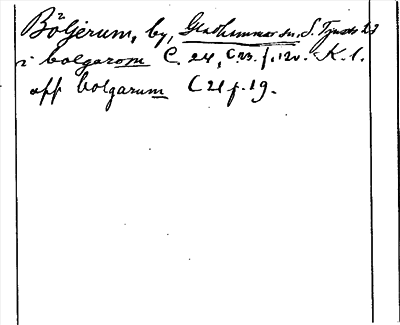 Böljerum, by, Glanshammar sn, S.
i bolgarom C. 24, C 23. f. 120. K. 1.
aff bolgarum C 21 f. 19.